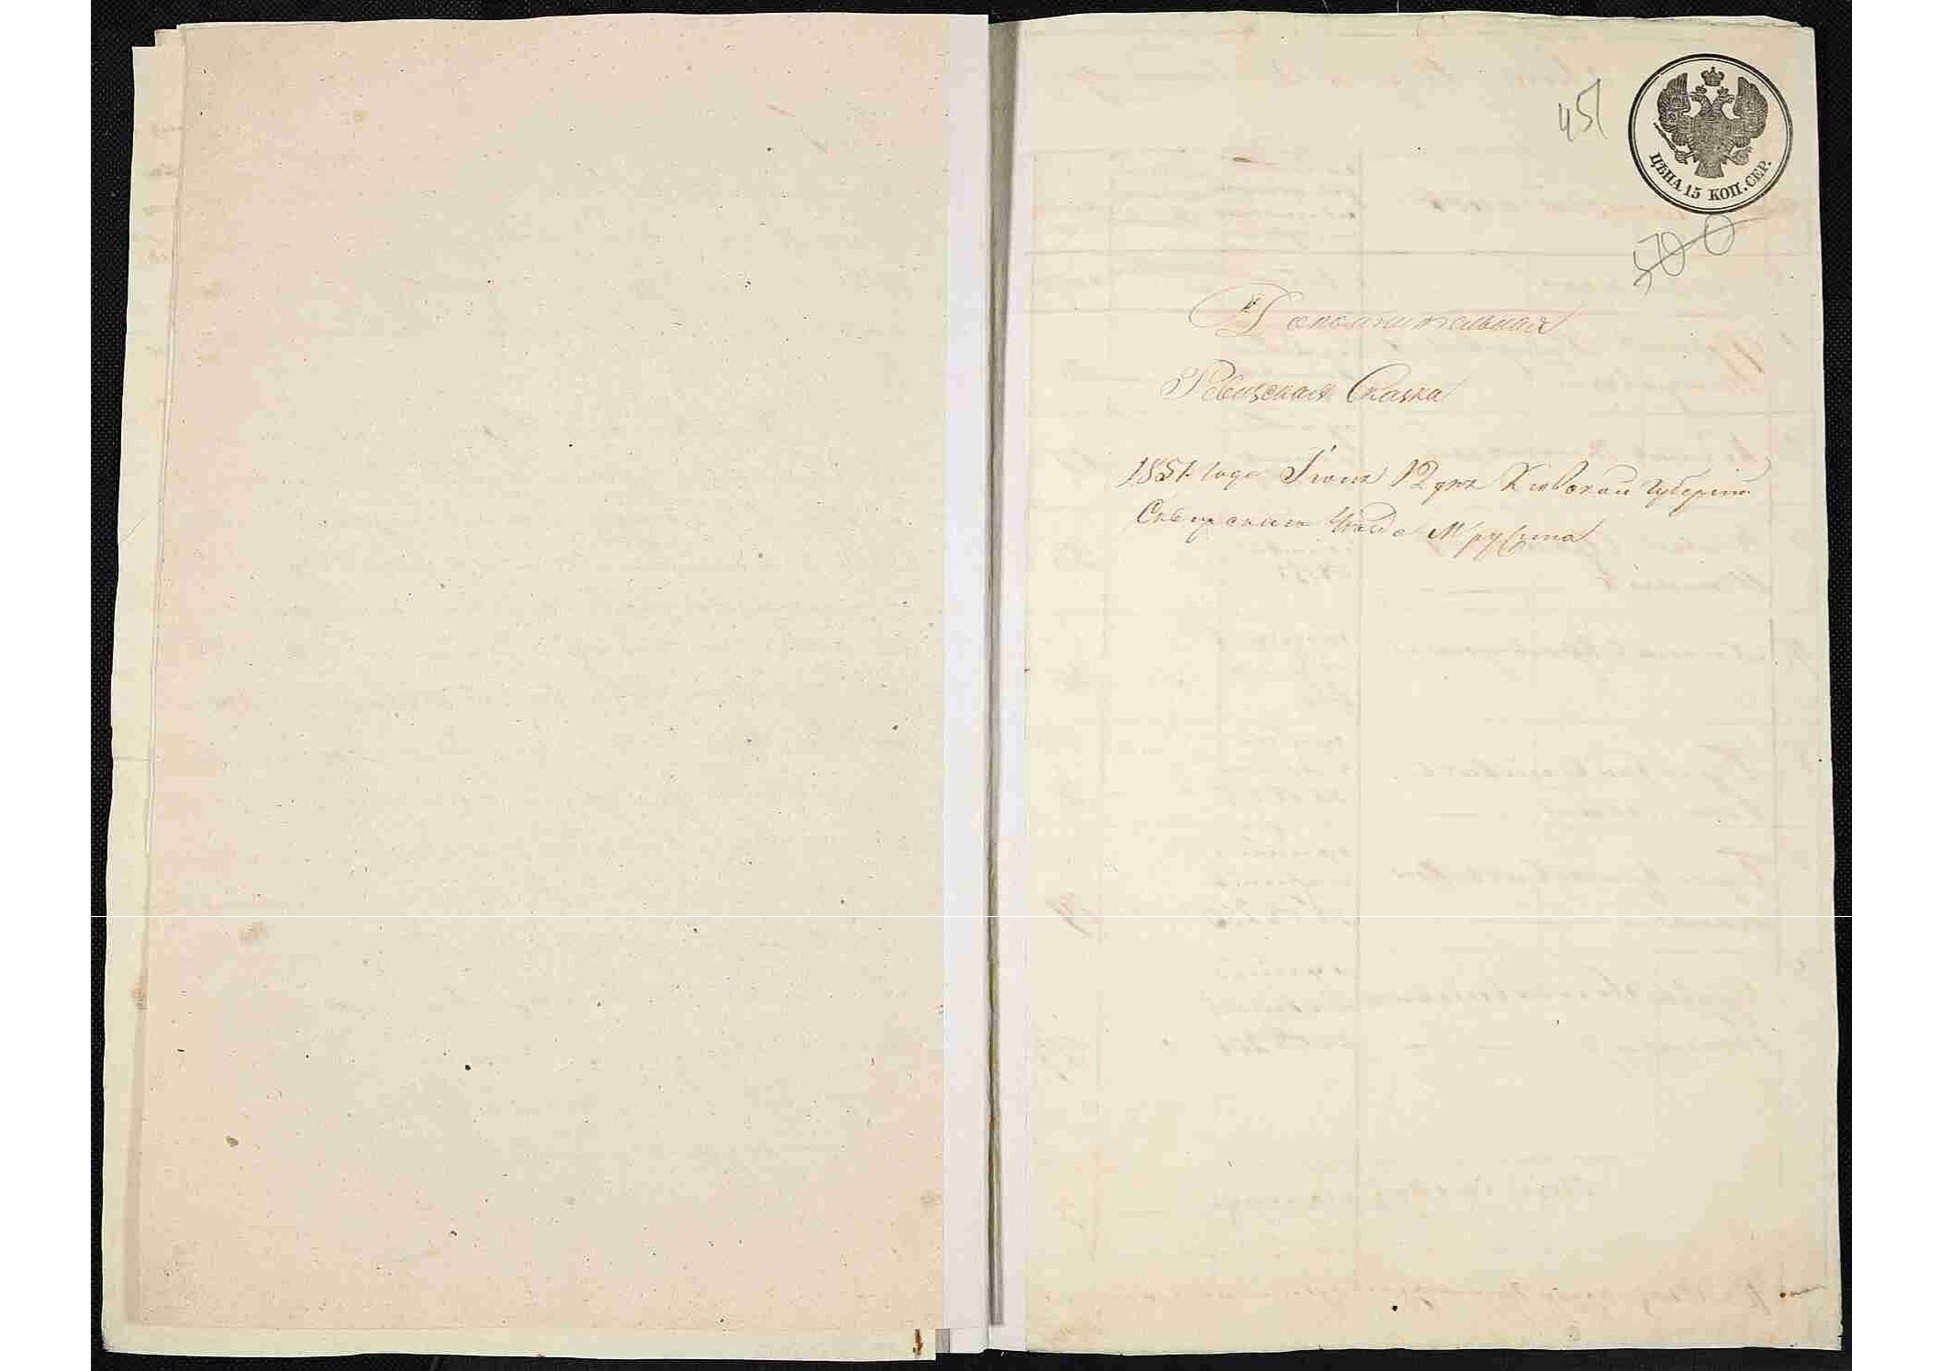 451
ЦѢНА 15 КОП. СЕР.
500
Дополнительная
Ревизская Сказка
1851 года Июня 12 дня Кіевской Губерніи
Сквирскаго Уѣзда М.